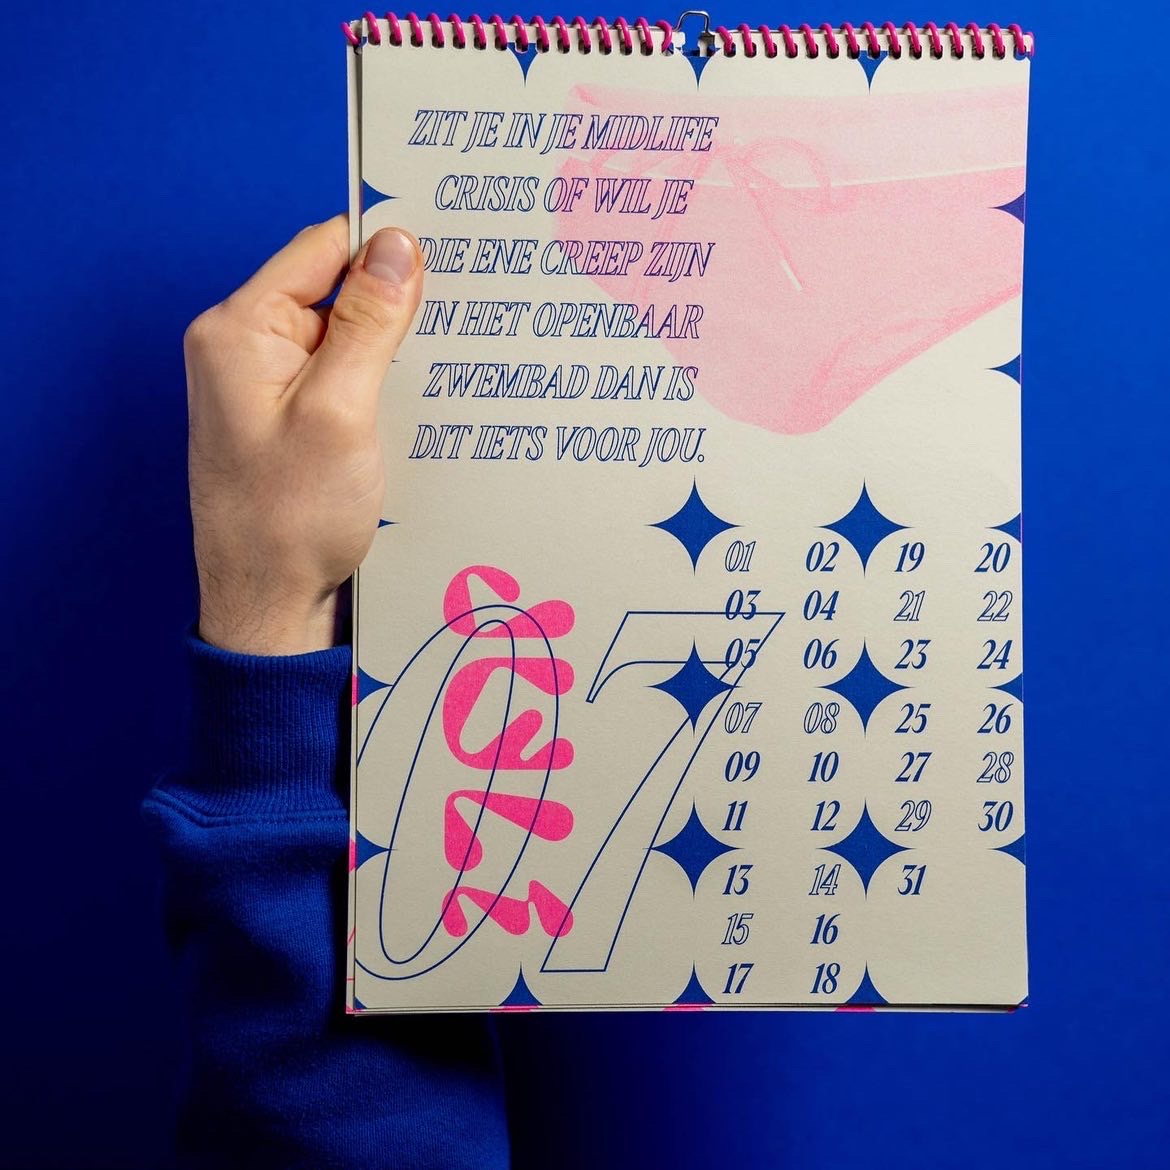 ZIT JE IN JE MIDLIFE
CRISIS OF WIL JE
DIE ENE CREEP ZIJN
IN HET OPENBAAR
ZWEMBAD DAN IS
DIT IETS VOOR JOU.
07
JULI
01 02 19 20
03 04 21 22
05 06 23 24
07 08 25 26
09 10 27 28
11 12 29 30
13 14 31
15 16
17 18